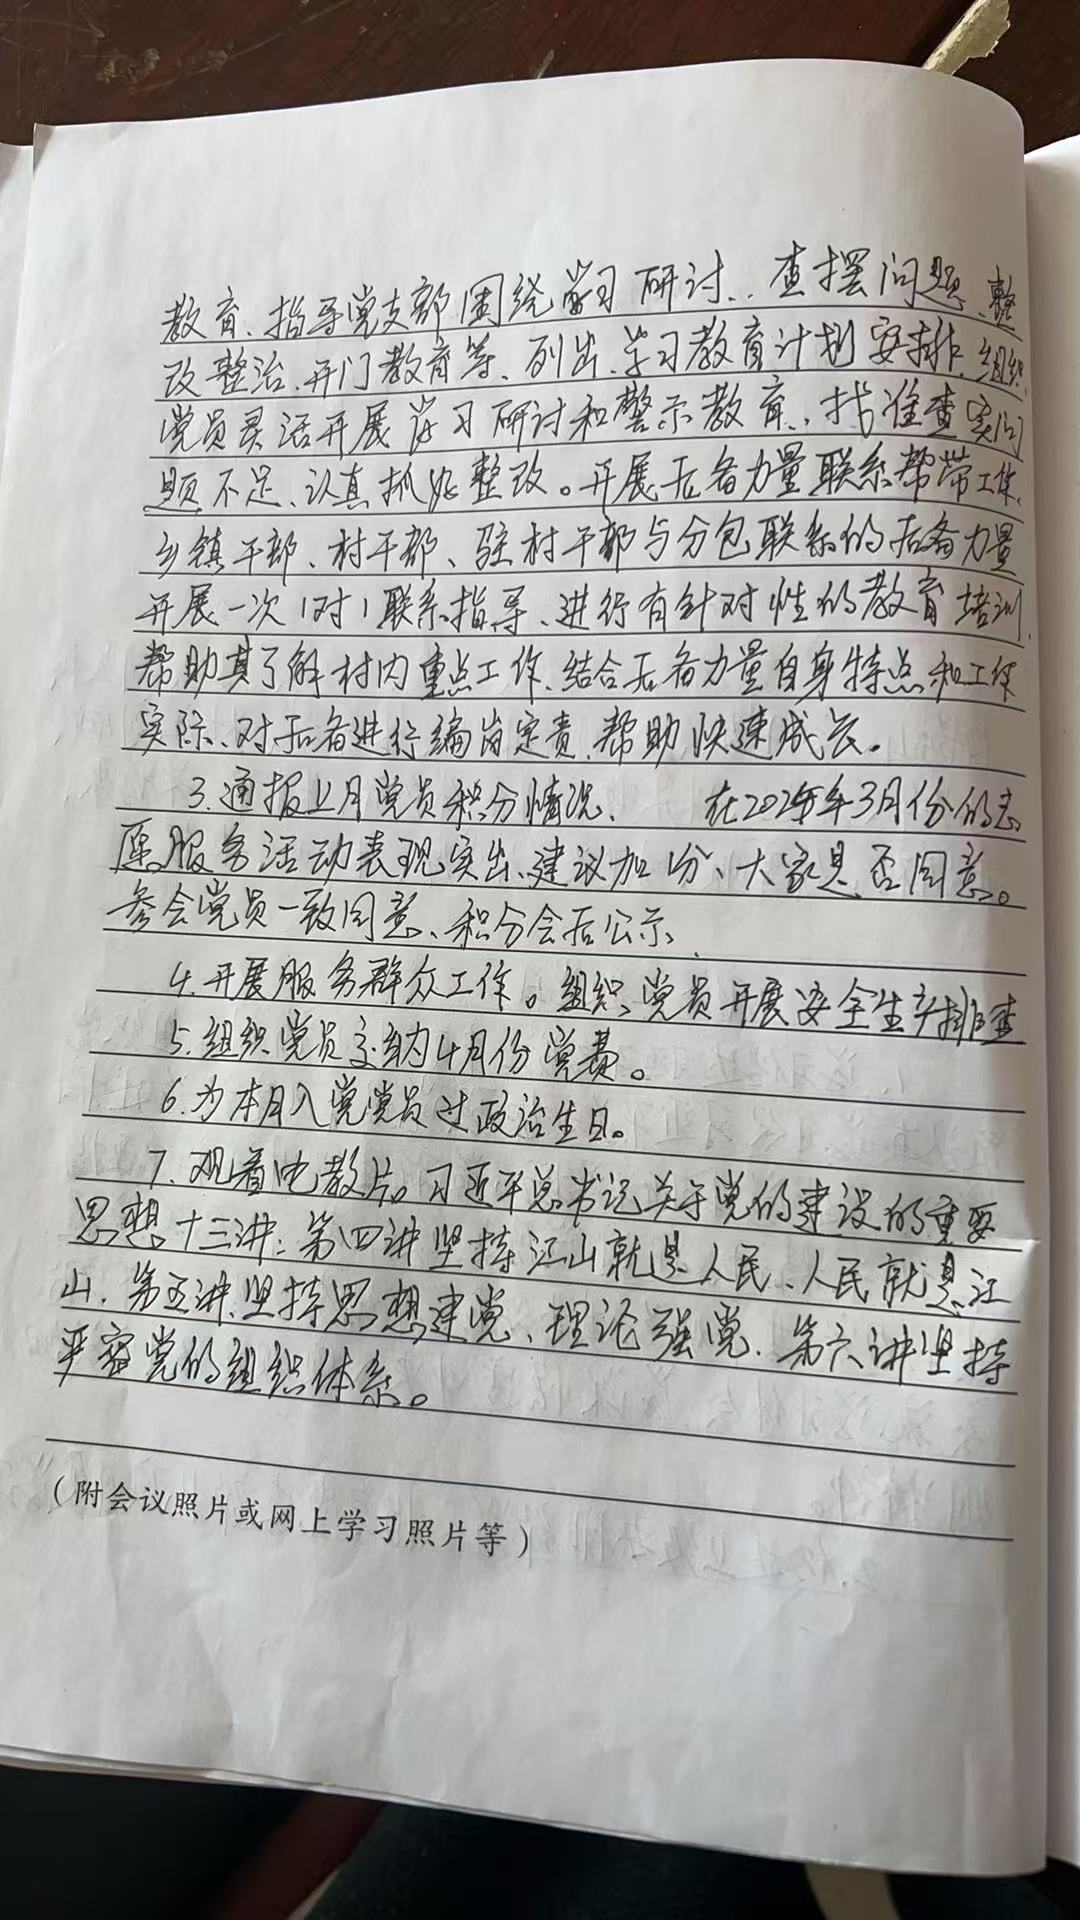 教育、指导党支部围绕学习研讨、查摆问题、整
改整治、开门教育等、列出学习教育计划安排、组织
党员灵活开展学习研讨和警示教育、找准查实问
题不足、认真抓好整改。开展后备力量联系帮带工作、
乡镇干部、村干部、驻村干部与分包联系的后备力量
开展一次1对1联系指导、进行有针对性的教育培训、
帮助其了解村内重点工作、结合后备力量自身特点和工作
实际、对后备进行编岗定责、帮助快速成长。
3.通报上月党员积分情况、 在2025年3月份的志
愿服务活动表现突出、建议加 分、大家是否同意。
参会党员一致同意、积分会后公示、
4.开展服务群众工作。组织党员开展安全生产排查
5.组织党员交纳4月份党费。
6.为本月入党党员过政治生日。
7.观看电教片。习近平总书记关于党的建设的重要
思想十三讲：第四讲坚持江山就是人民、人民就是江
山、第五讲、坚持思想建党、理论强党、第六讲坚持
严密党的组织体系。
（附会议照片或网上学习照片等）